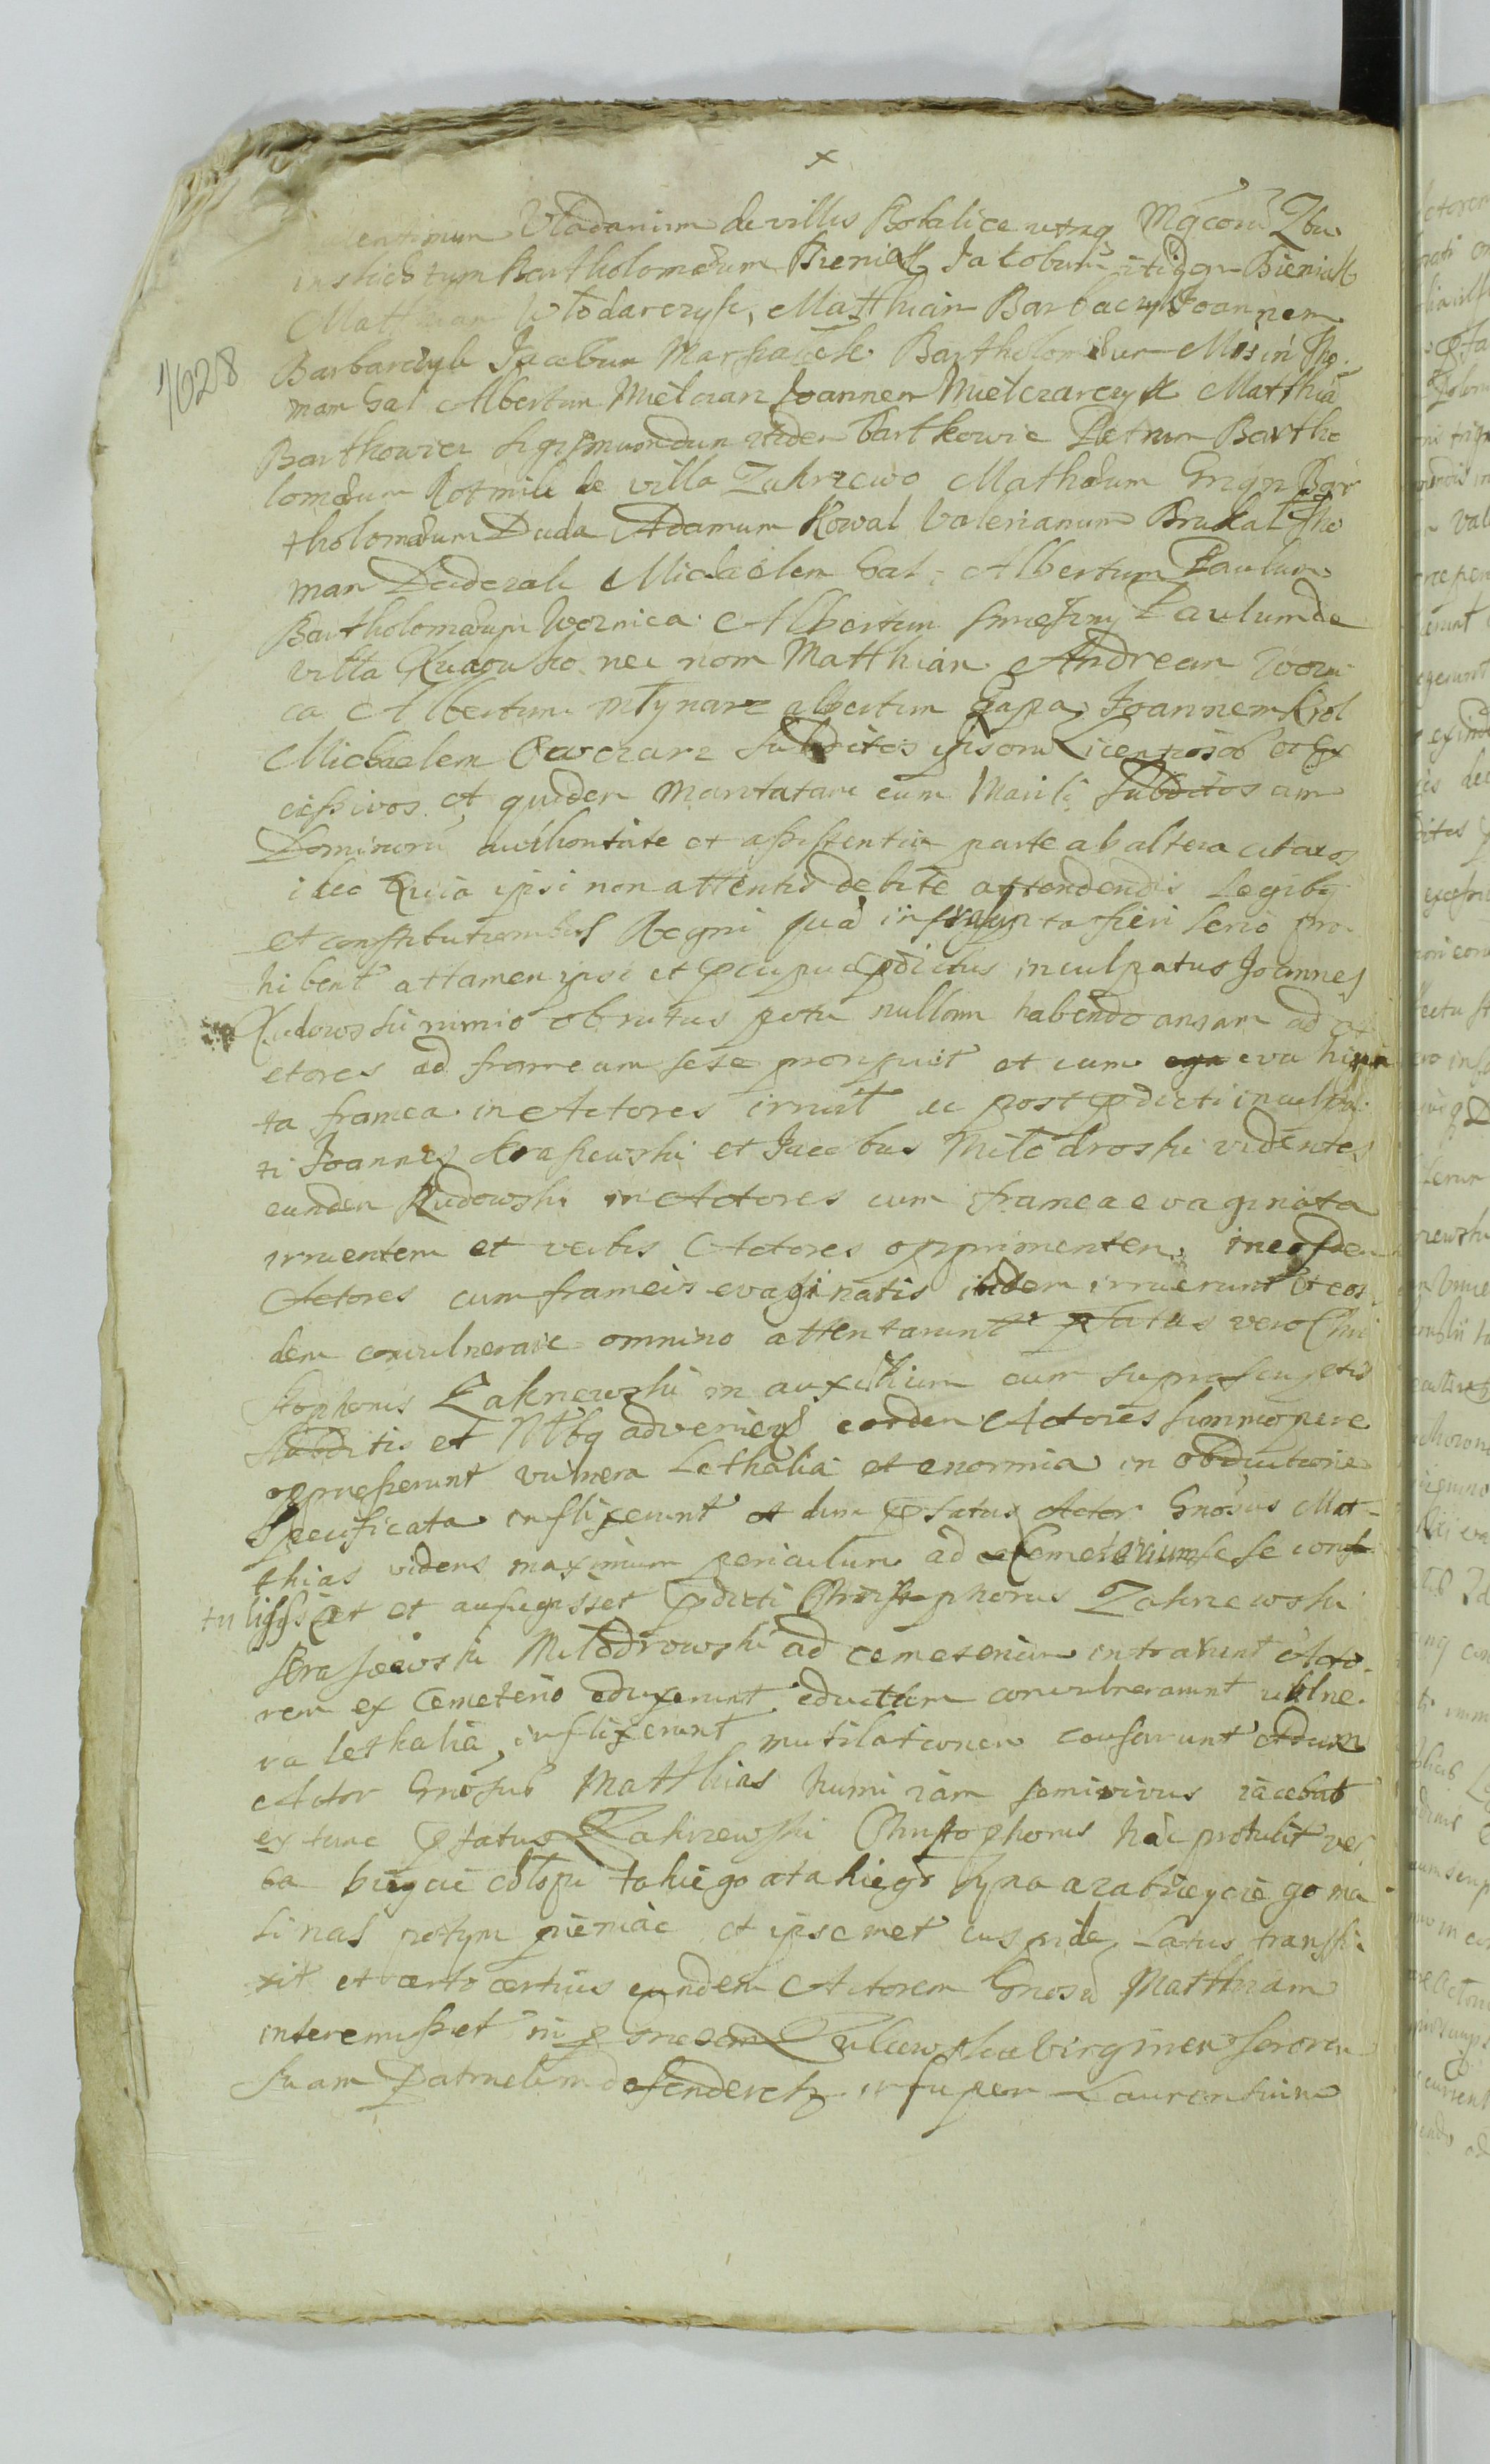 x
Vladanium de villis Bokalice utraq Mgcorū Zbu
Bartholomæum Bieniak Jacobum itidem Bieniak
Matthiam Wlodarczyk, Matthiam Barbaczyk Joannem
1028
Barbarczyk Jacobum Marszałek Bartholomæum Mosin Tho
mam Gal Albertum Mielcarz Joannem Mielczarczyk Matthiā
Bartkowicz Sigismundum itidem Bartkowic Petrum Bartho
lomæum Rotmik de villa Zakrzewo Mathæum Grzyn Bar
tholomæum Duda Adamum Kowal Valerianum Brukał Tho
mam Michaelem Gal Albertum Paulum
Bartholomæum Woznica Albertum Smieszny Paulum de
villa nec non Matthiam Andream Wozni
ca Albertum Młynarz albertum Gapa Joannem Krol
Michaelem Owczarz Subditos ipsorū Licentiosos et Ex
cessivos et quidem Maritatam cum Mariti Subditos cum
Dominorū authoritate et assistentia parte ab altera citatos
ideo Quia ipsi non attentis debite attendendis Legibq
et constitutionibus Regni quæ infrascripta fieri serio pro
hibent attamen ipsi et pcipue pdictus inculpatus Joannes
Rudowski nimio obrutus potu nullam habendo ansam ad A
ctores ad frameam sese proripuit et cum evagina
ta framea in Actores irruit ac post pdicti inculpa
ti Joannes Kraszewski et Jacobus Miłodroski videntes
eundem Rudowski in Actores cum framea evaginata
irruentem et verbis Actores opprimentem, in eosdem
Actores cum frameis evaginatis itidem irruerunt et eos
dem convulnerare omnino attentarunt pfatus vero Chri
stophorus Zakrzewski in auxilium cum suprascriptis
Subditis et Ntibq adveniens eosdem Actores summopere
oppresserunt vulnera Lethalia et enormia in obductione
Specificata inflixerunt et dum pfatus Actor Gnosus Mat-
thias videns maximum periculum ad Cemeterium sese con
tulisset et aufugisset pdicti Christophorus Zakrzewski
Kraszewski Miłodrowski ad cemeterium intrarunt Acto
rem ex Cemeterio eduxerunt eductum convulnerarunt vulne
ra lethalia inflixerunt mutilationem causarunt et dum
Actor Gnosus Matthias humi iam semivivus iacebat
ex tunc pfatus Zakrzewski Christophorus hæc protulit ver
ba bieycie chłopi takiego a takiego syna a zabieycie go ma
li nas potym pieniac et ipsemet cuspide Latus transfi
xit et certo certius eundem Actorem Gnosū Matthiam
interemisset ni virginem sororem
suam Patruelem defenderetq insuper Laurentium